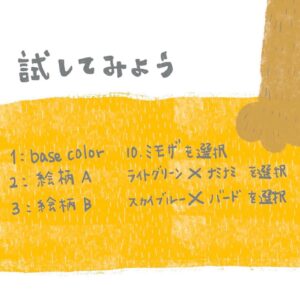 試してみよう
1:base color 10.ミモザを選択
2:絵柄A ライトグリーン×ナミナミ を選択
3:絵柄B スカイブルー×バード を選択